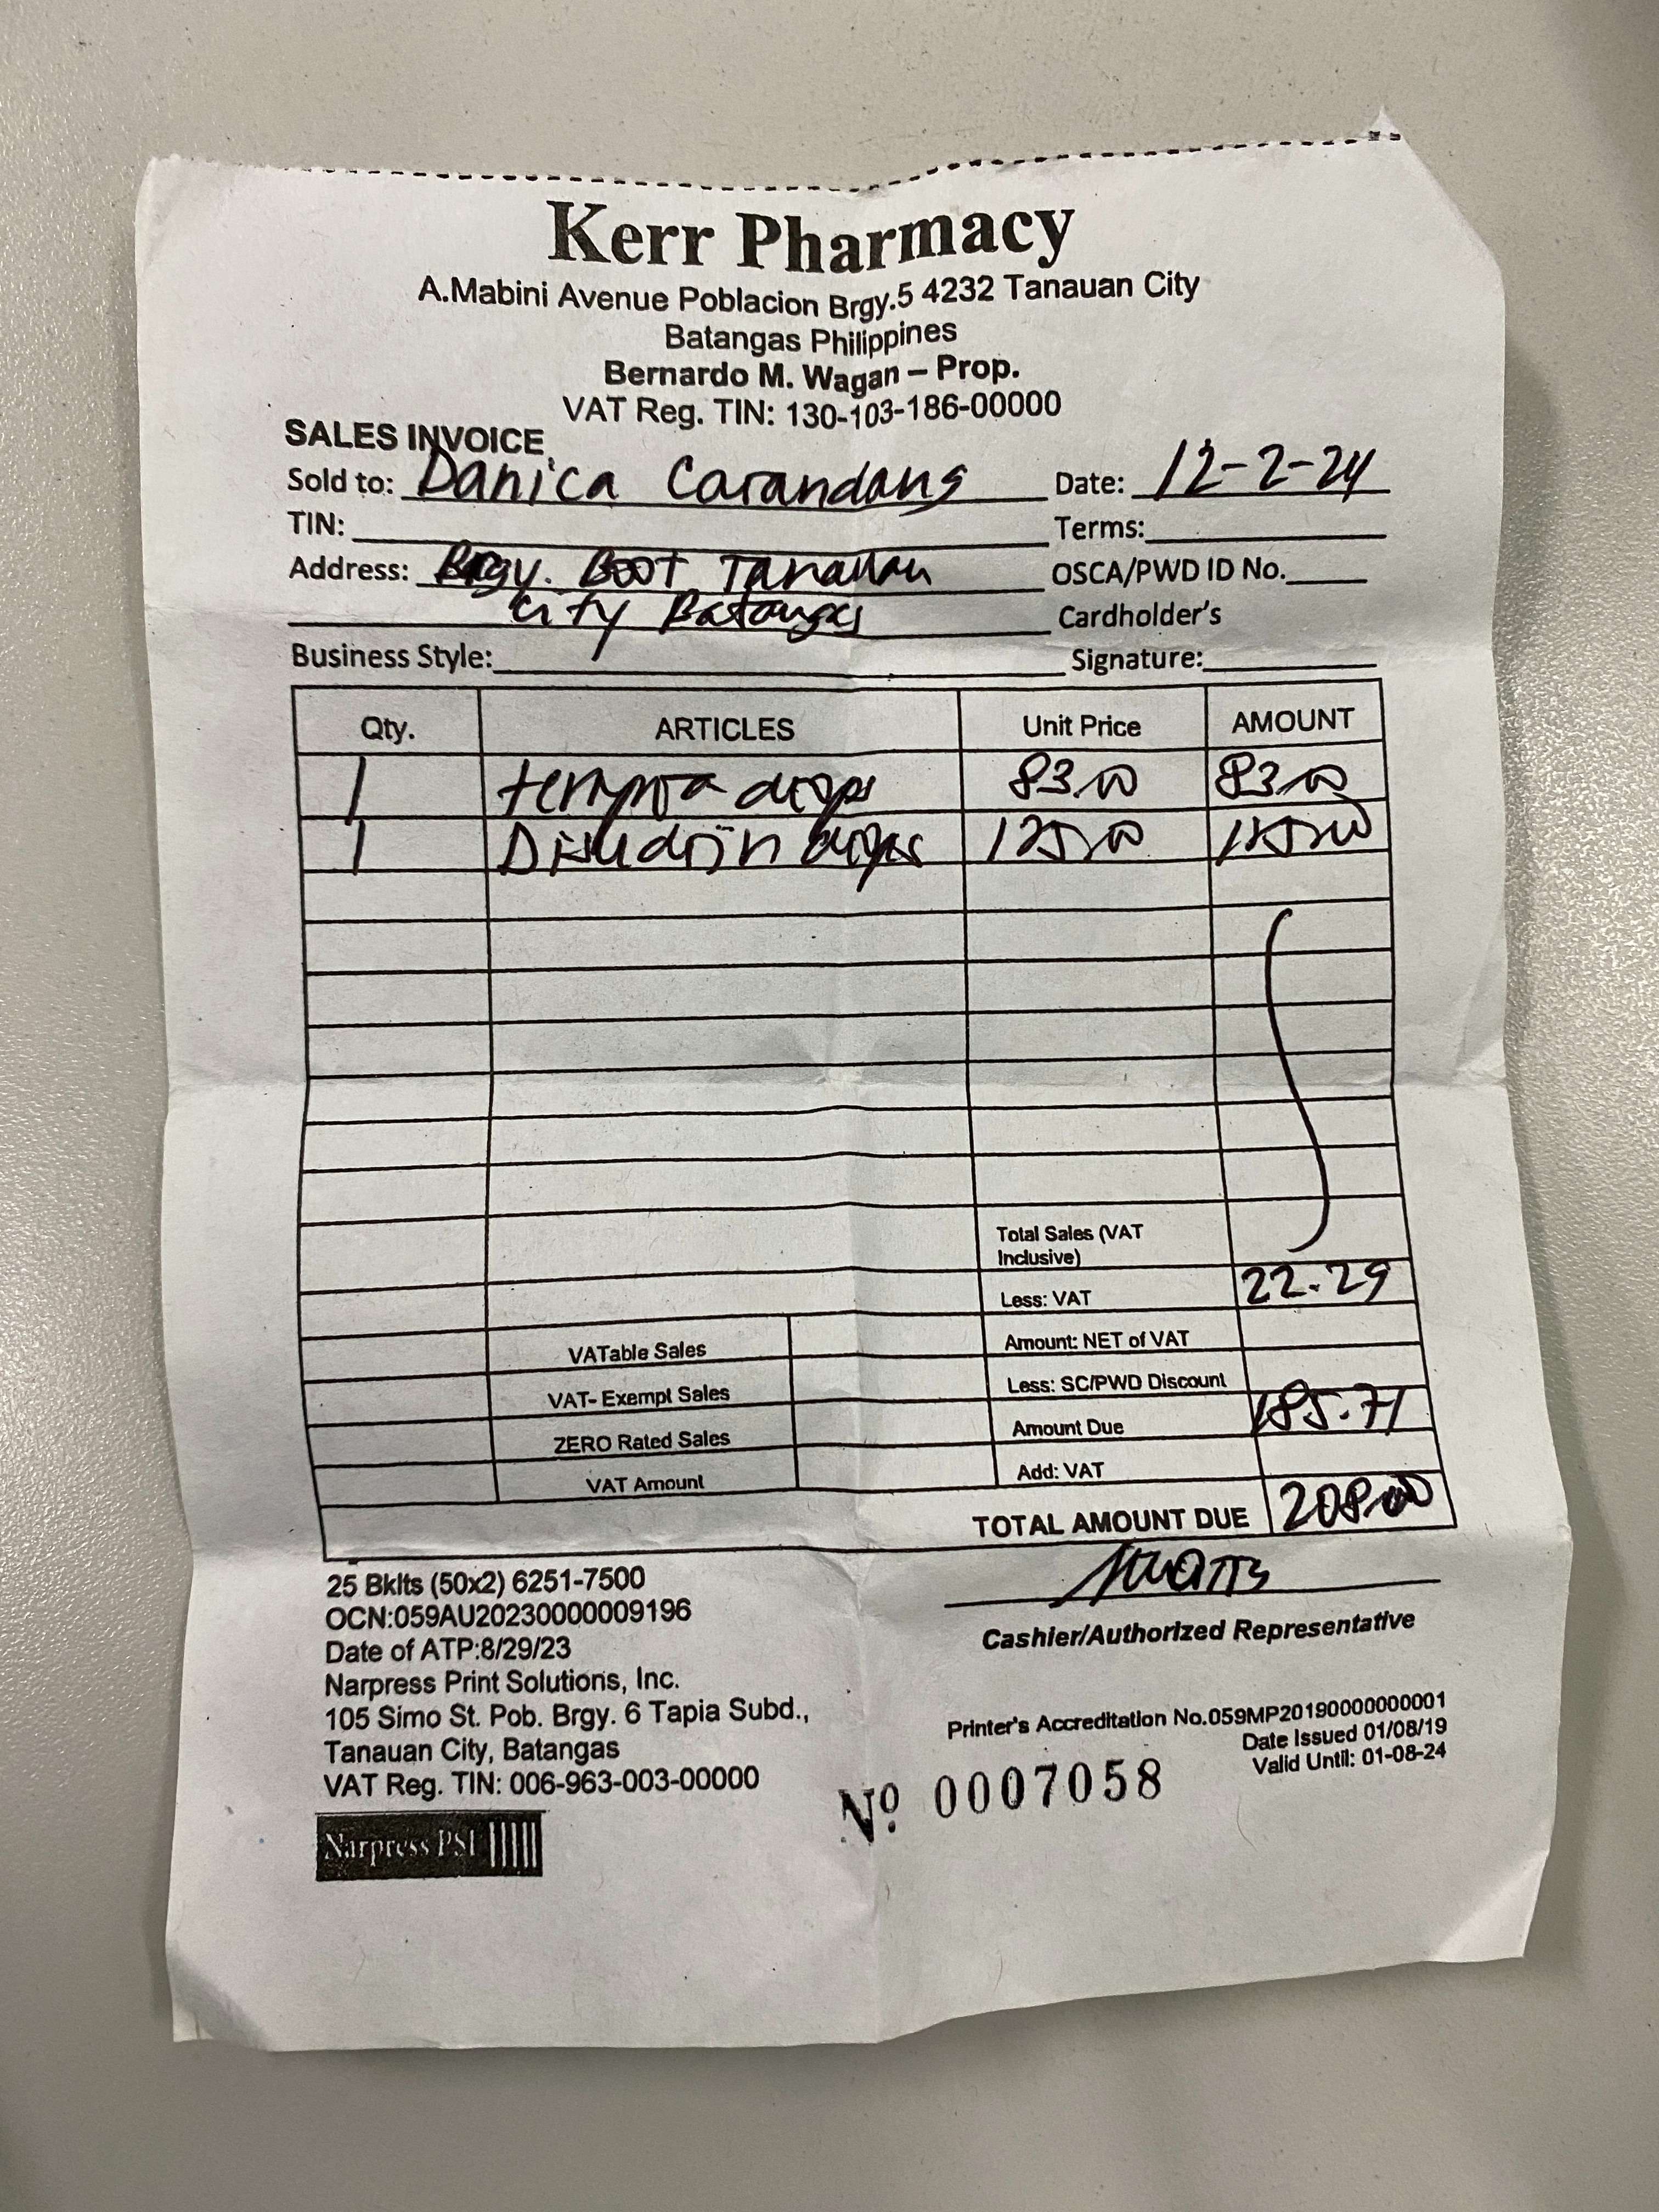 Kerr Pharmacy
A.Mabini Avenue Poblacion Brgy.5 4232 Tanauan City
Batangas Philippines
Bernardo M. Wagan – Prop.
VAT Reg. TIN: 130-103-186-00000
SALES INVOICE
Sold to: Danica Carandang Date: 12-2-24
TIN: Terms:
Address: Brgy. Boot Tanauan OSCA/PWD ID No.
City Batangas Cardholder's
Business Style: Signature:
Qty. ARTICLES Unit Price AMOUNT
1 tempra drops 83.00 83.00
1 drops 125.00 125.00
Total Sales (VAT
Inclusive)
Less: VAT 22.29
VATable Sales Amount: NET of VAT
VAT- Exempt Sales Less: SC/PWD Discount
ZERO Rated Sales Amount Due 185.71
VAT Amount Add: VAT
TOTAL AMOUNT DUE 208.00
25 Bklts (50x2) 6251-7500
OCN:059AU20230000009196
Date of ATP:8/29/23
Narpress Print Solutions, Inc.
105 Simo St. Pob. Brgy. 6 Tapia Subd.,
Tanauan City, Batangas
VAT Reg. TIN: 006-963-003-00000
Narpress PSI
Cashier/Authorized Representative
Printer's Accreditation No.059MP20190000000001
Date Issued 01/08/19
Valid Until: 01-08-24
Nº 0007058